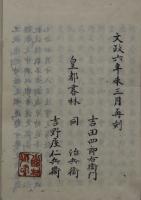 文政六年未三月再刻
吉田四郎右衛門
皇都書林 同 治兵衛
吉野屋仁兵衛